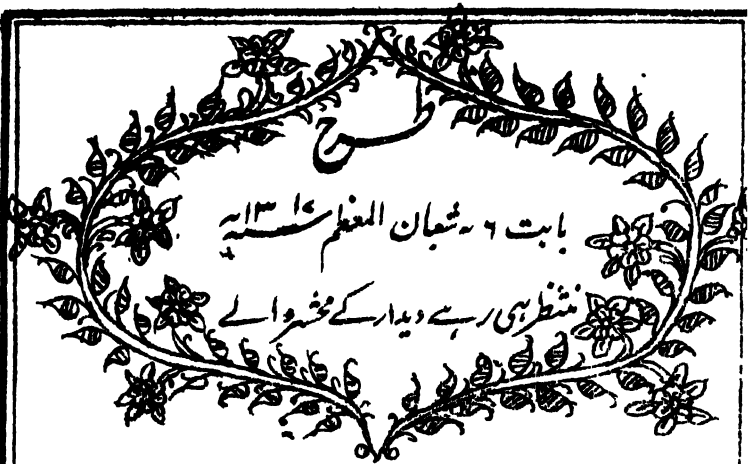 طرح
بابت ۶ شعبان المعظم سنہ ۱۳۱۷ھ
منتظر ہی رہے دیدار کے محشر والے